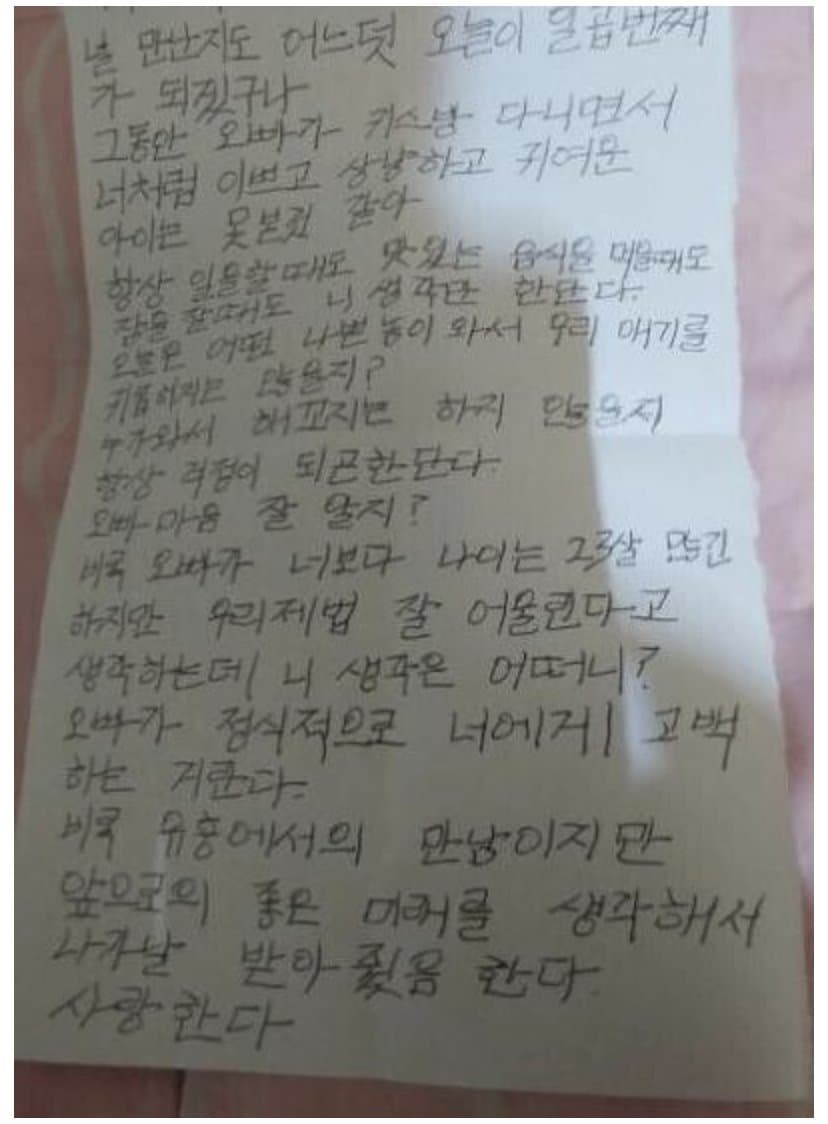 널 만난지도 어느덧 오늘이 일곱번째
가 되겠구나
그동안 오빠가 키스방 다니면서
너처럼 이쁘고 상냥하고 귀여운
아이는 못본것 같아
항상 일을할때도 맛있는 음식을 먹을때도
잠을 잘때도 니 생각만 한단다.
오늘은 어떤 나쁜놈이 와서 우리 애기를
누가와서 해꼬지는 하지 않을지
항상 걱정이 되곤한단다.
오빠 마음 잘 알지?
비록 오빠가 너보다 나이는 23살 많긴
하지만 우리제법 잘 어울린다고
생각하는데 니 생각은 어떠니?
오빠가 정식적으로 너에게 고백
하는 거란다.
비록 유흥에서의 만남이지만
앞으로의 좋은 미래를 생각해서
나가날 받아 줬음 한다.
사랑한다